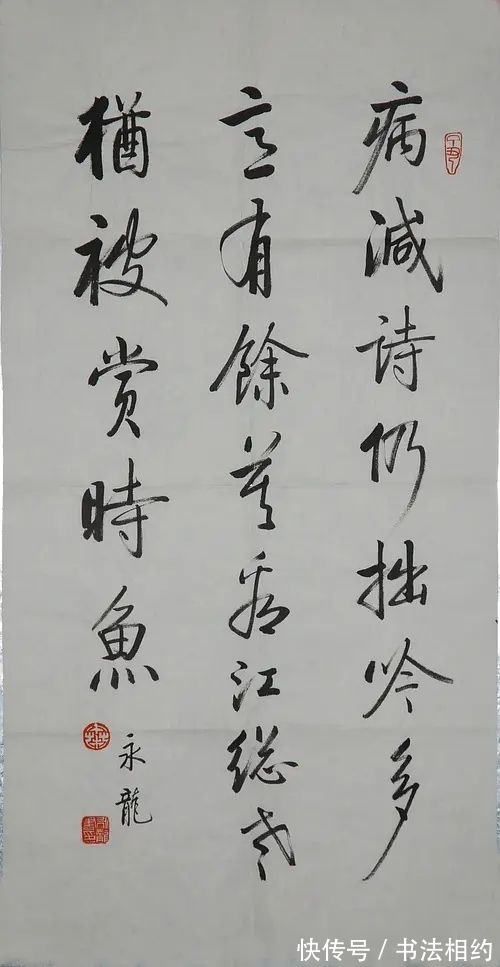 病減詩仍拙吟多
意有餘莫看江總老
猶被賞時魚
永龍
快传号 / 书法相约